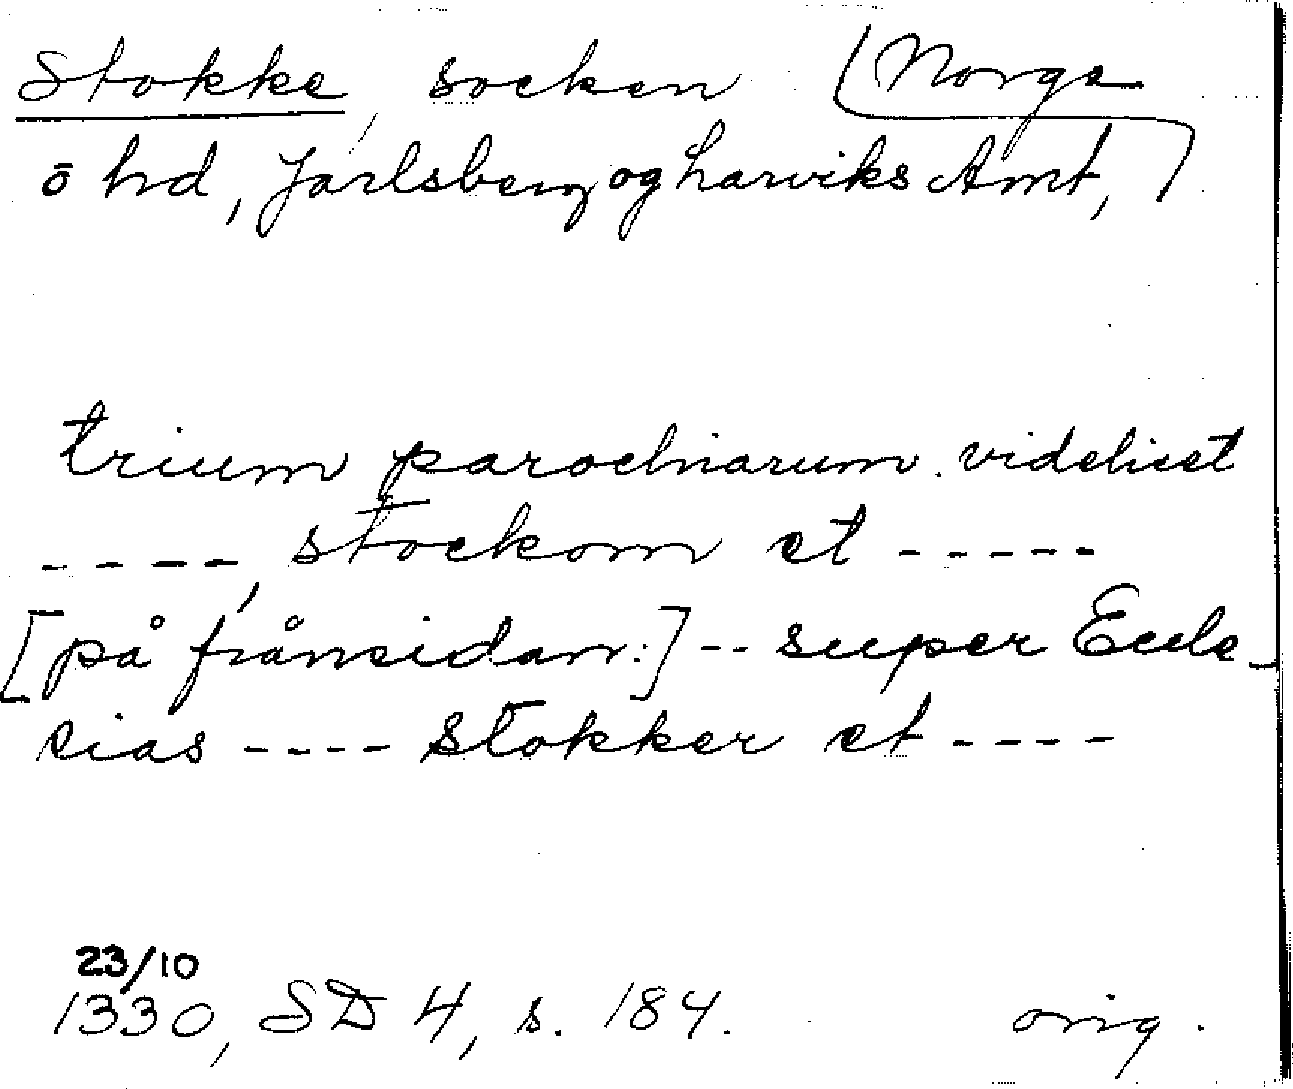 Stokke, socken (Norge
ō hd, Jarlsberg og Larviks Amt,)
trium parochiarum videlicet
----, stockom et -----
[på frånsidan:] -- super Eccle-
sias ---- Stokker et ----
23/10
1330, SD 4, s. 184. orig.